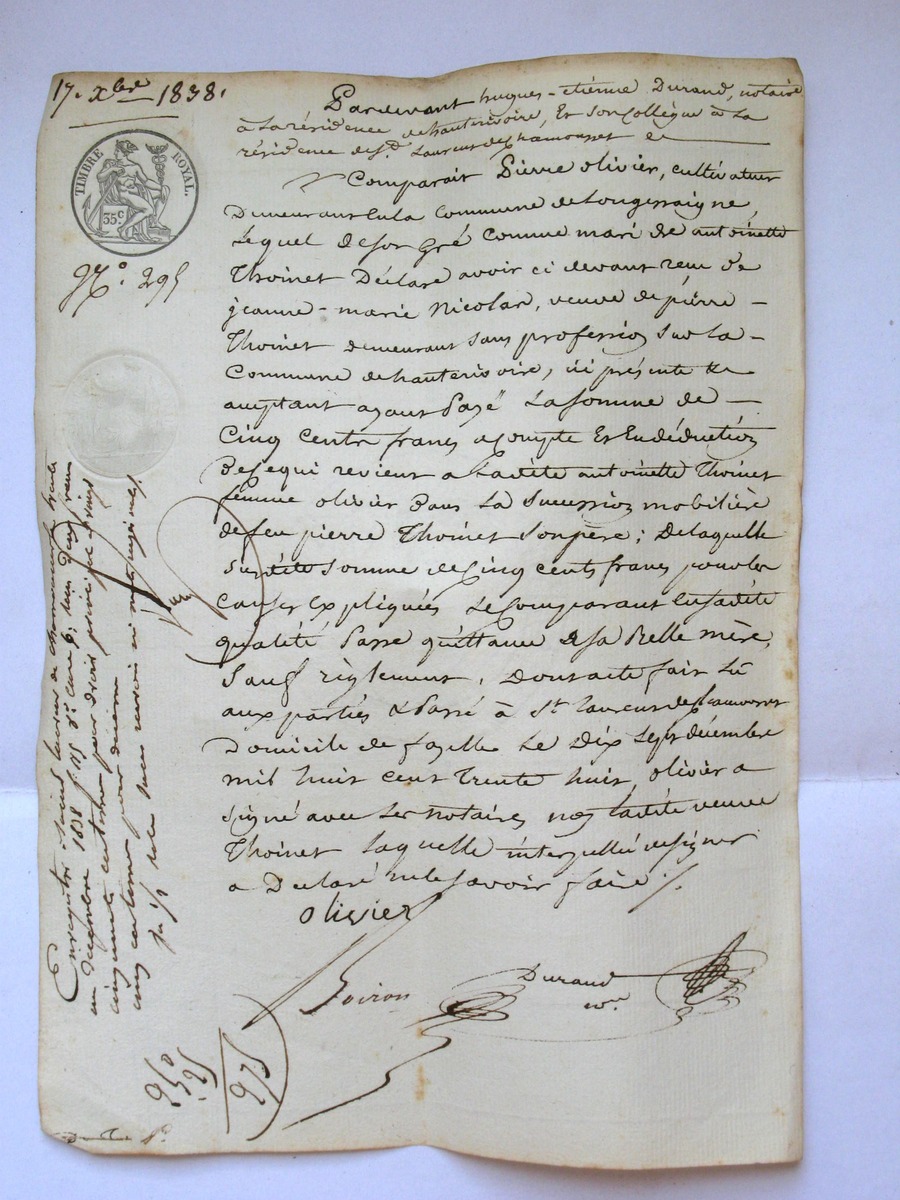 17. Xbre 1838.
TIMBRE ROYAL.
35c
No. 295
Pardevant hugues-étienne Durand, notaire
à La résidence de hauterivoire, Et Son Collègue à La
résidence de St. Laurent de Chamousset
Comparait Pierre olivier, cultivateur
Demeurant En la Commune de Longessaigne,
Lequel de Son Gré Comme mari de antoinette
Thoinet Déclare avoir ci devant reçu de
jeanne-marie Nicolas, veuve de pierre
Thoinet demeurant Sans profession Sur La
Commune de hauterivoire, ici présente Et
acceptant ayant Payé La Somme de
Cinq Cents francs acompte Et En déduction
De Ce qui revient a Ladite antoinette Thoinet
femme olivier Dans La Succession mobilière
de feu pierre Thoinet Son père; De laquelle
Susdite Somme de Cinq Cents francs pour les
Causes Expliquées Le Comparant En Sadite
qualité Passe quittance à Sa Belle mère,
Sauf règlement, Dont acte fait Lu
aux parties & Passé à St. Laurent de Chamousset
Domicile de fayelle Le Dix Sept décembre
mil huit Cent Trente huit, olivier a
Signé avec Les notaires non Ladite veuve
Thoinet Laquelle interpellée de Signer
a Déclaré ne le Savoir faire ./.
olivier
Boiron
Durand
Enregistré à Saint Laurent de Chamousset
Décembre 1838 f. 15 Ro. Case 6: reçu Deux francs
cinquante centimes pour droit principal
cinq centimes pour décime